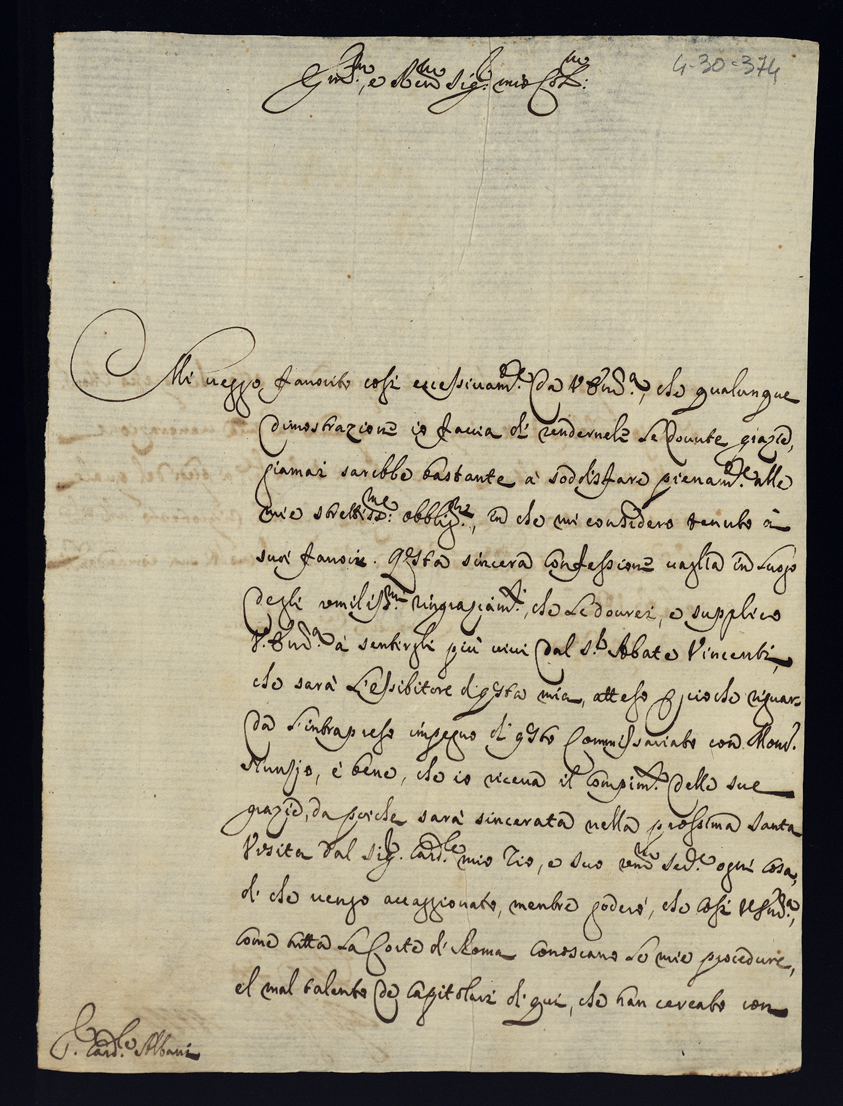 4-30-374
Em.mo, e R.mo Sig.r mio Col.mo:
Mi veggo favorito così eccessivam.te da V. Em.a, che qualunque
dimostrazione io faccia di rendernele le dovute grazie,
giamai sarebbe bastante à soddisfare pienam.te alle
mie strettiss.me obblig.ni, in che mi considero tenuto à
suoi favori. Q.sta sincera confessione vaglia in luogo
degli umiliss.mi ringraziam.ti, che le dovrei, e supplico
V. Em.a à sentirgli più vivi dal S.r Abbate Vincenti,
che sarà l'essibitore di q.sta mia, atteso p ciò che riguar-
da l'intrapreso impegno di q.sto Commissariato con Mons.r
Nunzio, è bene, che io riceva il compim.to delle sue
grazie, da poiche sarà sincerata nella prossima santa
Visita dal Sig.r Card.le mio Zio, e suo ogni cosa,
di che vengo accaggionato, mentre goderò, che così V. Em.a,
come tutta la Corte di Roma conoscano le mie procedure,
el mal talento de Capitolari di qui, che han cercato con
S. Card.le Albani